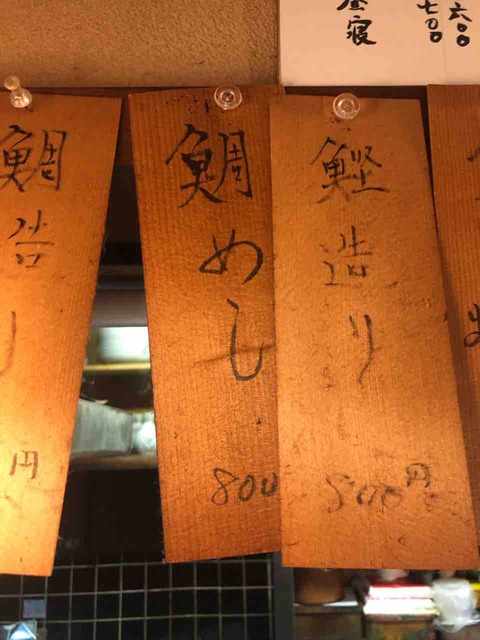 六〇〇
七〇〇
鰹造り
500円
鯛めし
800
鯛造り
円